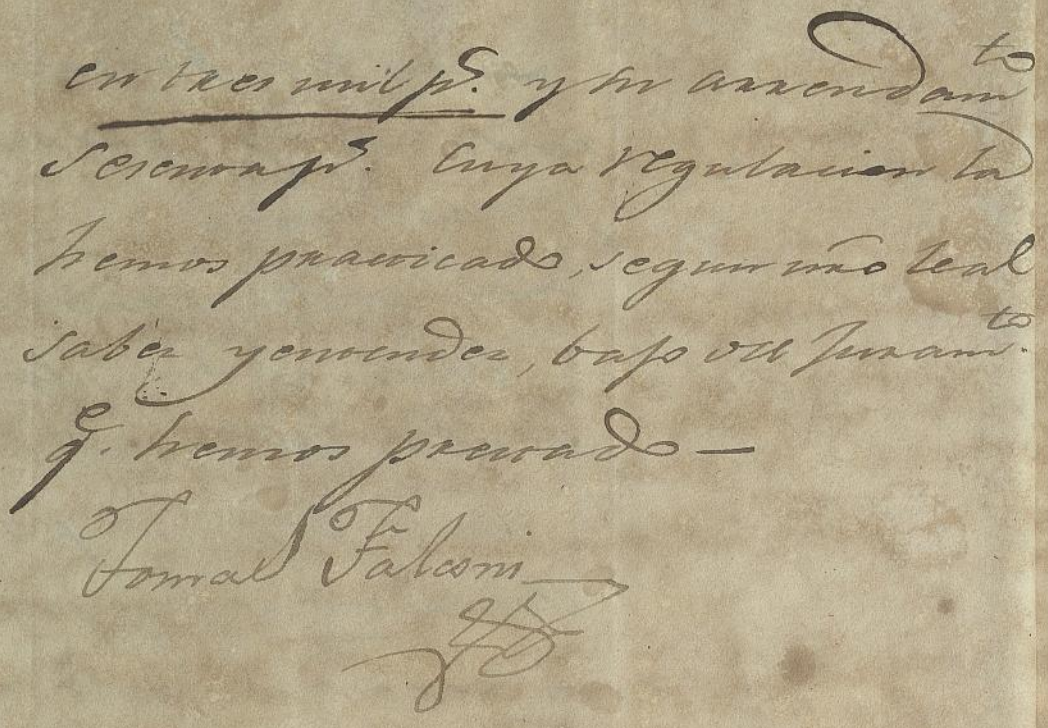 en tres mil p.s y su arrendam.to
Sesenta p.s. Cuya regulacion la
hemos practicado, segun nro leal
saber y entender, bajo del Juram.to
q.e hemos prestado —
Tomas Falconi